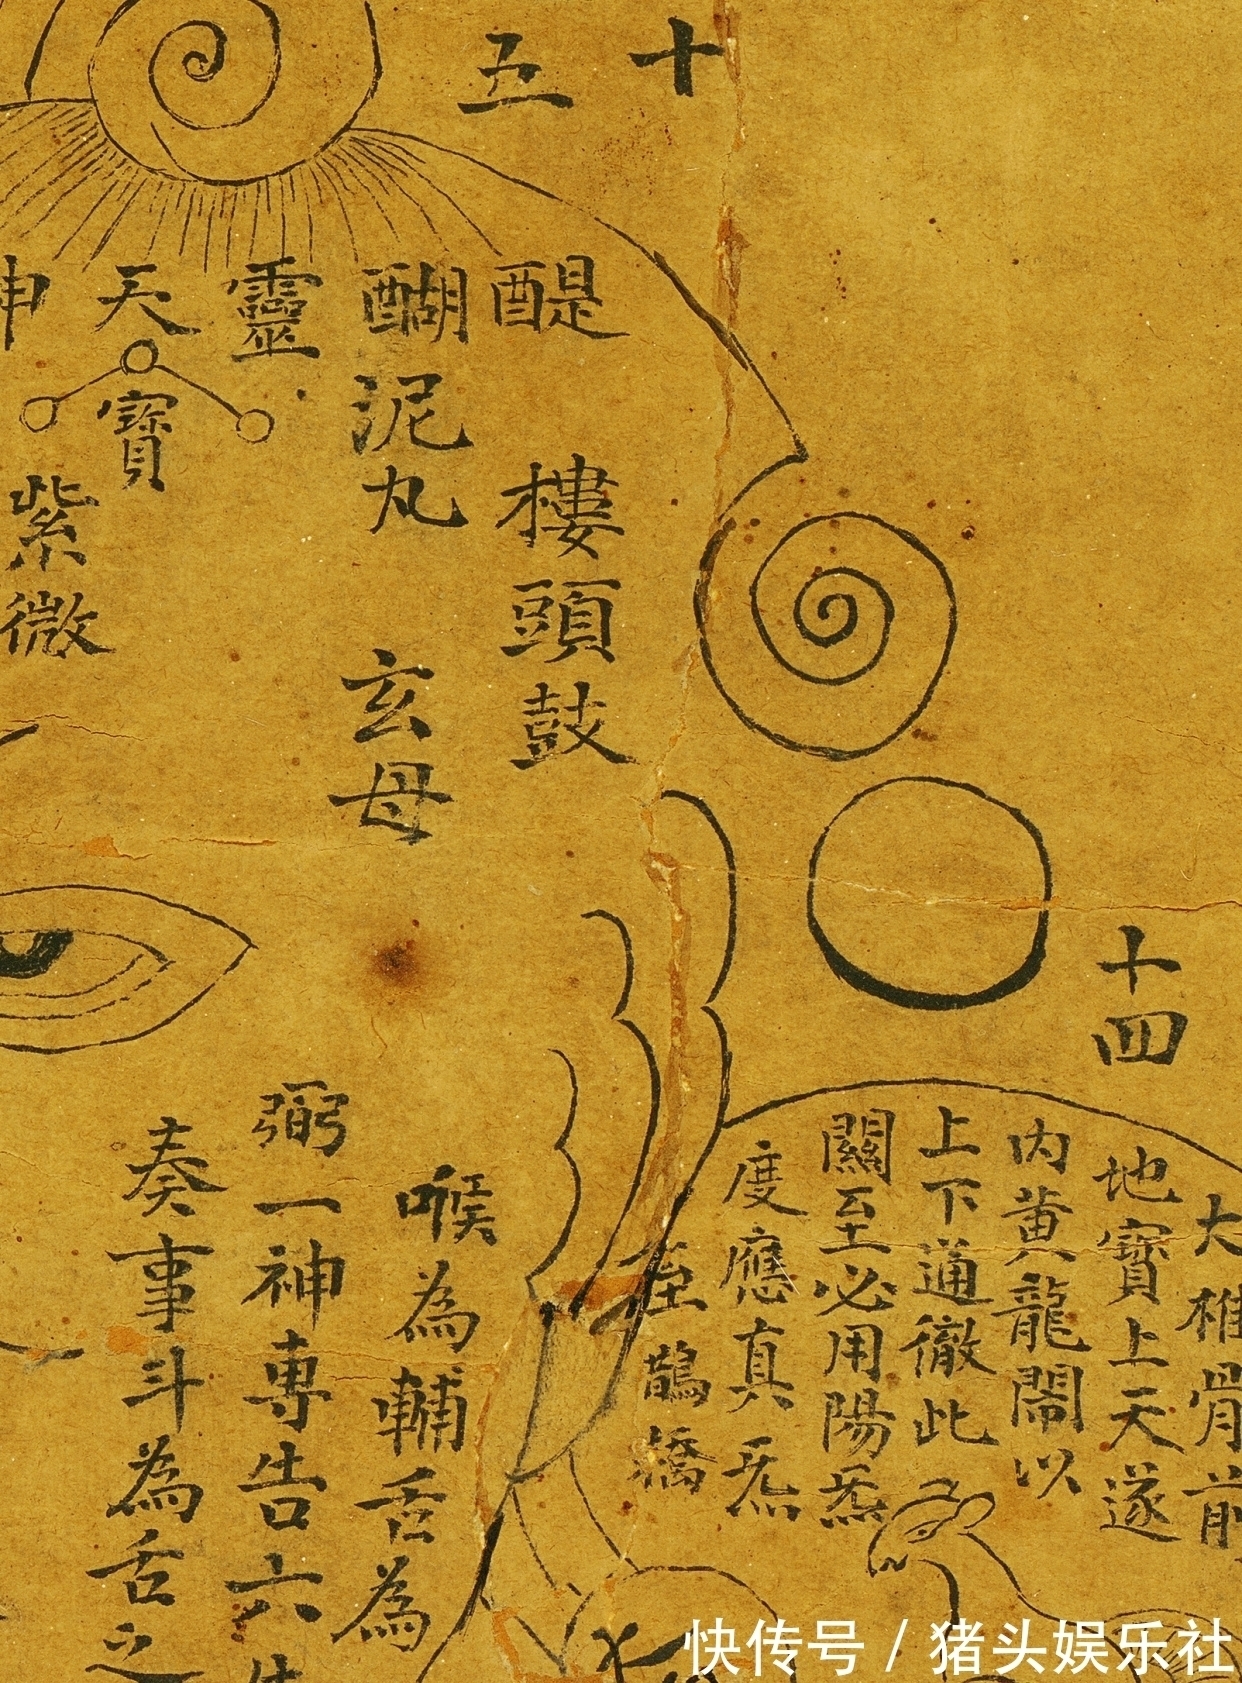 十五
醍醐靈天神
泥丸
寶
樓頭鼓
紫微
玄母
十四
大椎骨前
地寶上天遂
内黄龍闹以
上下通徹此
關至必用陽炁
度應真炁
至鵲橋
喉為輔舌為
弼一神專告六
奏事斗為舌之
快传号 / 猪头娱乐社